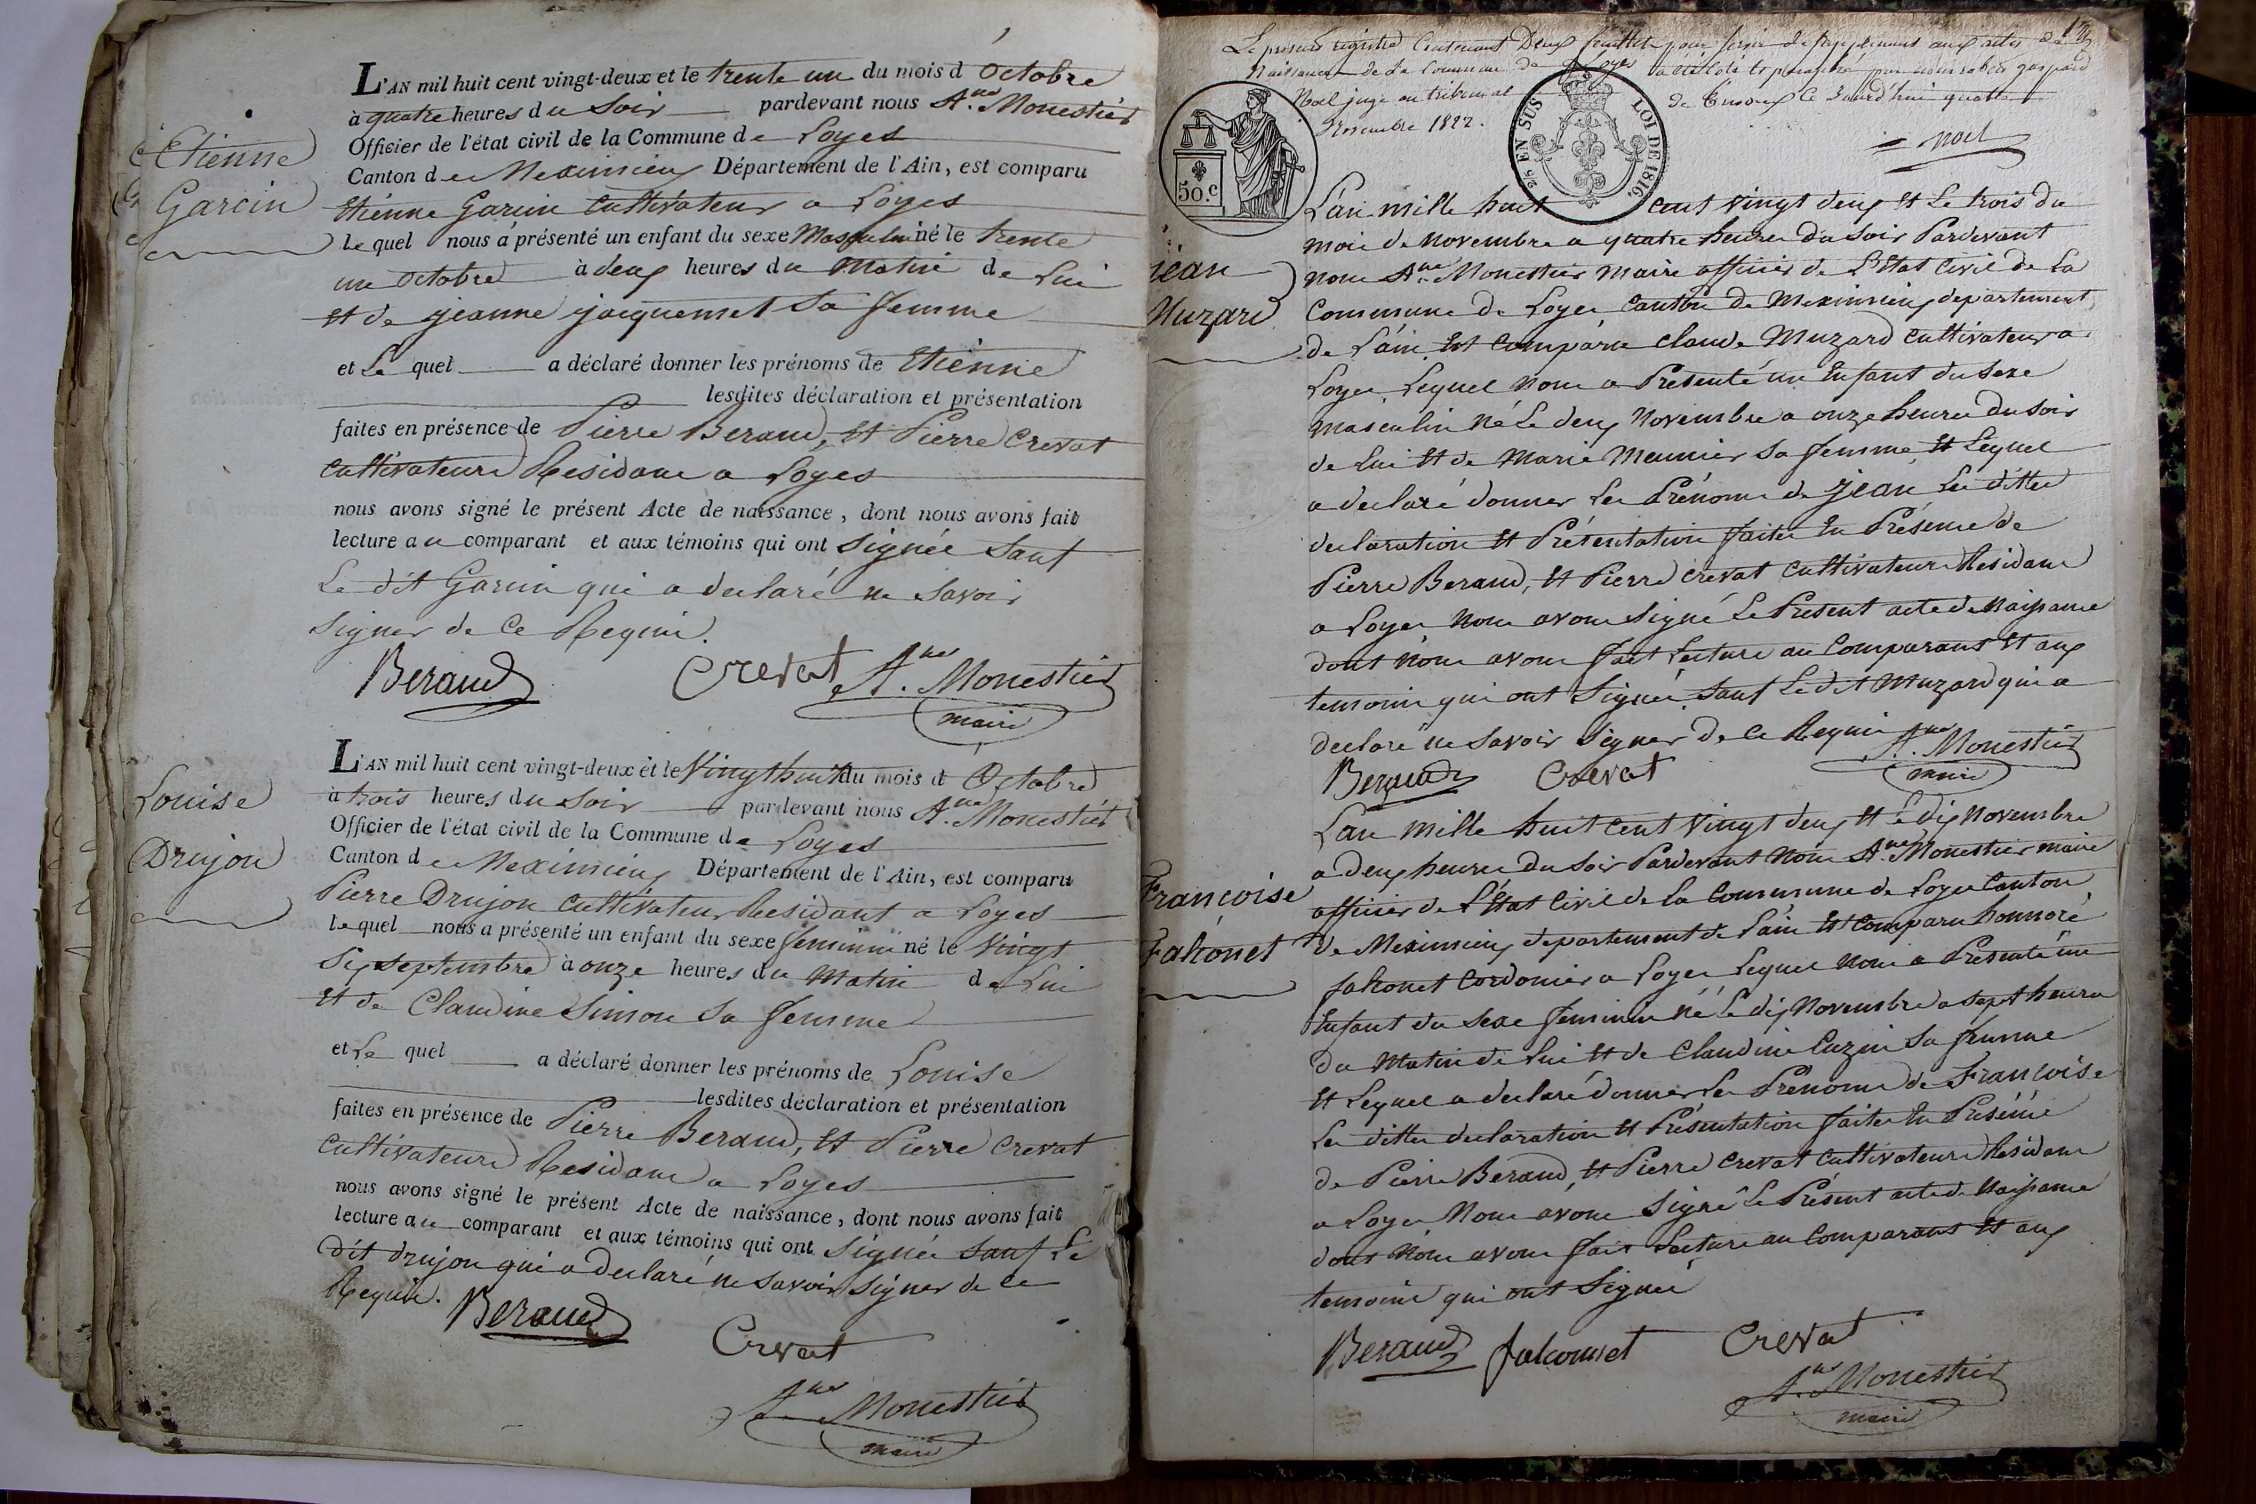 Etienne
Garcin
L'AN mil huit cent vingt-deux et le trente un du mois d'Octobre
à quatre heures du Soir pardevant nous A.ne Monestier
Officier de l'état civil de la Commune de Loyes
Canton de Meximieux Département de l'Ain, est comparu
Etienne Garcin Cultivateur a Loyes
lequel nous a présenté un enfant du sexe Masculin né le trente
un Octobre à deux heures du Matin de Lui
et de jeanne jacquemet Sa femme
et Le quel a déclaré donner les prénoms de Etienne
lesdites déclaration et présentation
faites en présence de Pierre Beraud, et Pierre Crevat
Cultivateurs Residans a Loyes
nous avons signé le présent Acte de naissance, dont nous avons fait
lecture au comparant et aux témoins qui ont Signés Sauf
Le dit Garcin qui a declaré ne Savoir
Signer de Ce Requis.
Beraud Crevat A.ne Monestier
maire
Louise
Drujon
L'AN mil huit cent vingt-deux et le Vingt huit du mois d Octobre
à trois heures du Soir pardevant nous A.ne Monestier
Officier de l'état civil de la Commune de Loyes
Canton de Meximieux Département de l'Ain, est comparu
Pierre Drujon Cultivateur Residant a Loyes
lequel nous a présenté un enfant du sexe feminin né le Vingt
Six Septembre à onze heures du Matin de Lui
et de Claudine Simon Sa femme
et Le quel a déclaré donner les prénoms de Louise
lesdites déclaration et présentation
faites en présence de Pierre Beraud, et Pierre Crevat
Cultivateurs Residans a Loyes
nous avons signé le présent Acte de naissance, dont nous avons fait
lecture au comparant et aux témoins qui ont Signés Sauf Le
dit drujon qui a declaré ne Savoir Signer de Ce
Requis. Beraud
Crevat
A.ne Monestier
maire
Le présent registre Contenant Deux feuillets pour servir de supplement aux actes de
Naissance de la Commune de Loyes a été Coté et paraphé par nous gaspard
Noel juge au tribunal de Trevoux Ce jourd'hui quatre
Novembre 1822.
Noel
50.c
2/5 EN SUS
LOI DE 1816.
jean
Muzard
L'an mille huit cent Vingt deux et Le trois du
mois de Novembre a quatre heures du Soir Pardevant
Nous A.ne Monestier Maire officier de L'Etat Civil de La
Commune de Loyes Canton de Meximieux departement
de L'ain Est Comparu Claude Muzard Cultivateur a
Loyes Lequel Nous a Presenté un Enfant du Sexe
masculin Né Le deux Novembre a onze heures du Soir
de Lui et de Marie Meunier Sa femme et Lequel
a declaré donner Les Prénoms de jean Les dittes
declaration et Présentation faites En Présence de
Pierre Beraud, et Pierre Crevat Cultivateurs Residans
a Loyes Nous avons Signé Le Present acte de Naissance
dont Nous avons fait Lecture au Comparant et aux
temoins qui ont Signés Sauf Le dit Muzard qui a
declaré ne Savoir Signer de Ce Requis A.ne Monestier
Beraud Crevat maire
Francoise
Falconet
L'an mille huit Cent Vingt deux et Le dix Novembre
a deux heures du Soir Pardevant Nous A.ne Monestier maire
officier de L'Etat Civil de La Commune de Loyes Canton
de Meximieux departement de L'ain Est Comparu honnoré
falconet Cordonier a Loyes Lequel Nous a Presenté un
Enfant du Sexe feminin Né Le dix Novembre a Sept heures
du Matin de Lui et de Claudine Cuzin Sa femme
et Lequel a declaré donner Les Prénoms de Francoise
Les dittes declaration et Présentation faites En Présence
de Pierre Beraud, et Pierre Crevat Cultivateurs Residans
a Loyes Nous avons Signé Le Présent acte de Naissance
dont Nous avons fait Lecture au Comparant et aux
temoins qui ont Signés
Beraud falconnet Crevat
A.ne Monestier
maire